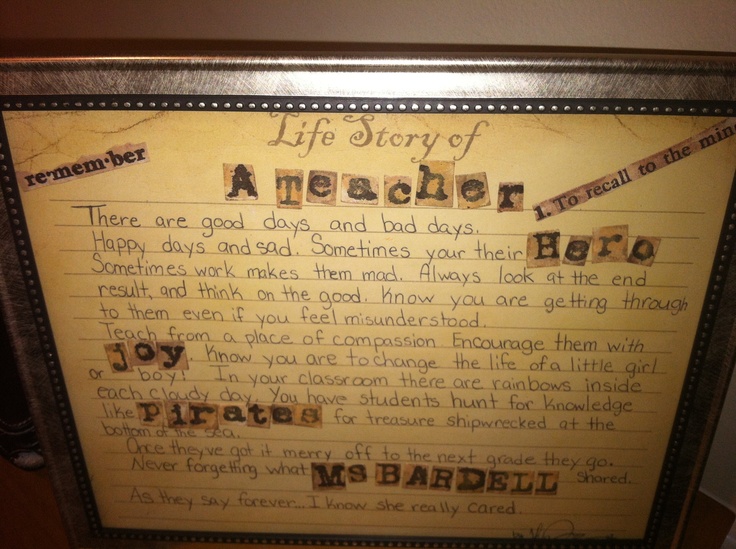 Life Story of
re·mem·ber
A Teacher
1. To recall to the min
There are good days and bad days.
Happy days and sad. Sometimes your their Hero
Sometimes work makes them mad. Always look at the end
result, and think on the good. Know you are getting through
to them even if you feel misunderstood.
Teach from a place of compassion Encourage them with
joy Know you are to change the life of a little girl
or boy! In your classroom there are rainbows inside
each cloudy day. You have students hunt for knowledge
like Pirates for treasure shipwrecked at the
bottom of the sea.
Once they've got it merry off to the next grade they go.
Never forgetting what MS BARDELL shared.
As they say forever... I know she really cared.
by